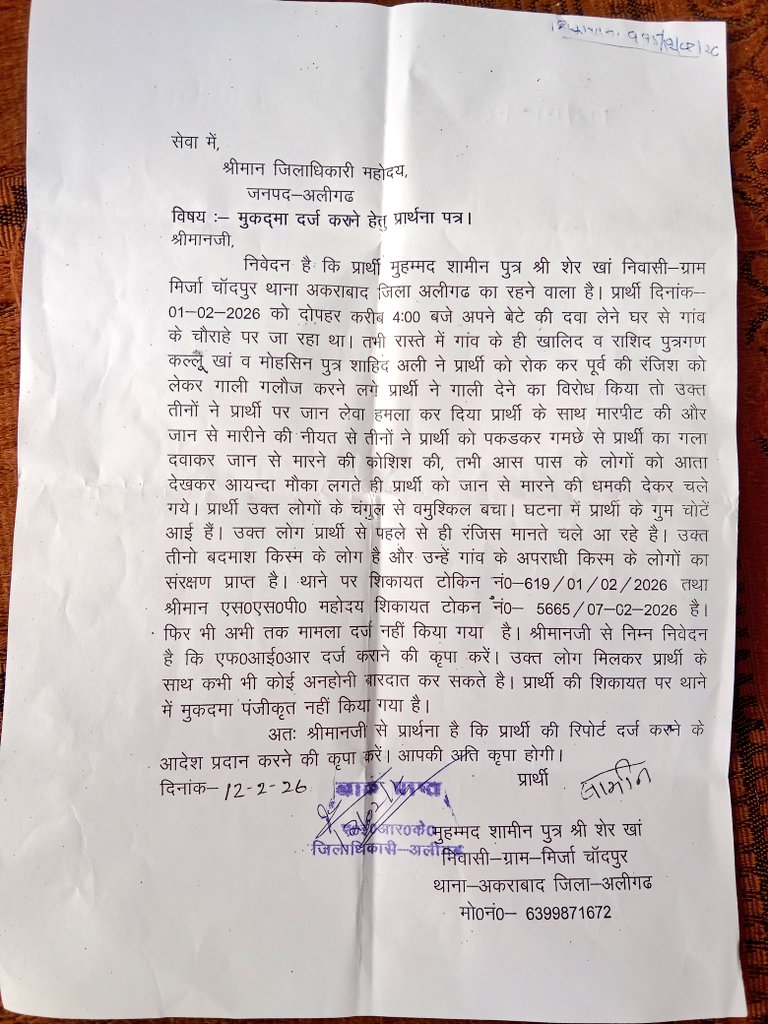 सेवा में,
श्रीमान जिलाधिकारी महोदय,
जनपद–अलीगढ
विषय :– मुकद्मा दर्ज कराने हेतु प्रार्थना पत्र।
श्रीमानजी,
निवेदन है कि प्रार्थी मुहम्मद शामीन पुत्र श्री शेर खां निवासी–ग्राम
मिर्जा चॉदपुर थाना अकराबाद जिला अलीगढ का रहने वाला है। प्रार्थी दिनांक–
01–02–2026 को दोपहर करीब 4:00 बजे अपने बेटे की दवा लेने घर से गांव
के चौराहे पर जा रहा था। तभी रास्ते में गांव के ही खालिद व राशिद पुत्रगण
कल्लू खां व मोहसिन पुत्र शाहिद अली ने प्रार्थी को रोक कर पूर्व की रंजिश को
लेकर गाली गलौज करने लगे प्रार्थी ने गाली देने का विरोध किया तो उक्त
तीनों ने प्रार्थी पर जान लेवा हमला कर दिया प्रार्थी के साथ मारपीट की और
जान से मारीने की नीयत से तीनों ने प्रार्थी को पकडकर गमछे से प्रार्थी का गला
दवाकर जान से मारने की कोशिश की, तभी आस पास के लोगों को आता
देखकर आयन्दा मौका लगते ही प्रार्थी को जान से मारने की धमकी देकर चले
गये। प्रार्थी उक्त लोगों के चंगुल से वमुश्किल बचा। घटना में प्रार्थी के गुम चोटें
आई हैं। उक्त लोग प्रार्थी से पहले से ही रंजिस मानते चले आ रहे है। उक्त
तीनो बदमाश किस्म के लोग है और उन्हें गांव के अपराधी किस्म के लोगों का
संरक्षण प्राप्त है। थाने पर शिकायत टोकिन नं0–619/01/02/2026 तथा
श्रीमान एस0एस0पी0 महोदय शिकायत टोकन नं0– 5665/07–02–2026 है।
फिर भी अभी तक मामला दर्ज नहीं किया गया है। श्रीमानजी से निम्न निवेदन
है कि एफ0आई0आर दर्ज कराने की कृपा करें। उक्त लोग मिलकर प्रार्थी के
साथ कभी भी कोई अनहोनी बारदात कर सकते है। प्रार्थी की शिकायत पर थाने
में मुकदमा पंजीकृत नहीं किया गया है।
अतः श्रीमानजी से प्रार्थना है कि प्रार्थी की रिपोर्ट दर्ज करने के
आदेश प्रदान करने की कृपा करें। आपकी अति कृपा होगी।
दिनांक– 12-2-26 प्रार्थी शामीन
प्राप्त
जिलाधिकारी–अलीगढ
मुहम्मद शामीन पुत्र श्री शेर खां
निवासी–ग्राम–मिर्जा चॉदपुर
थाना–अकराबाद जिला–अलीगढ
मो0नं0– 6399871672